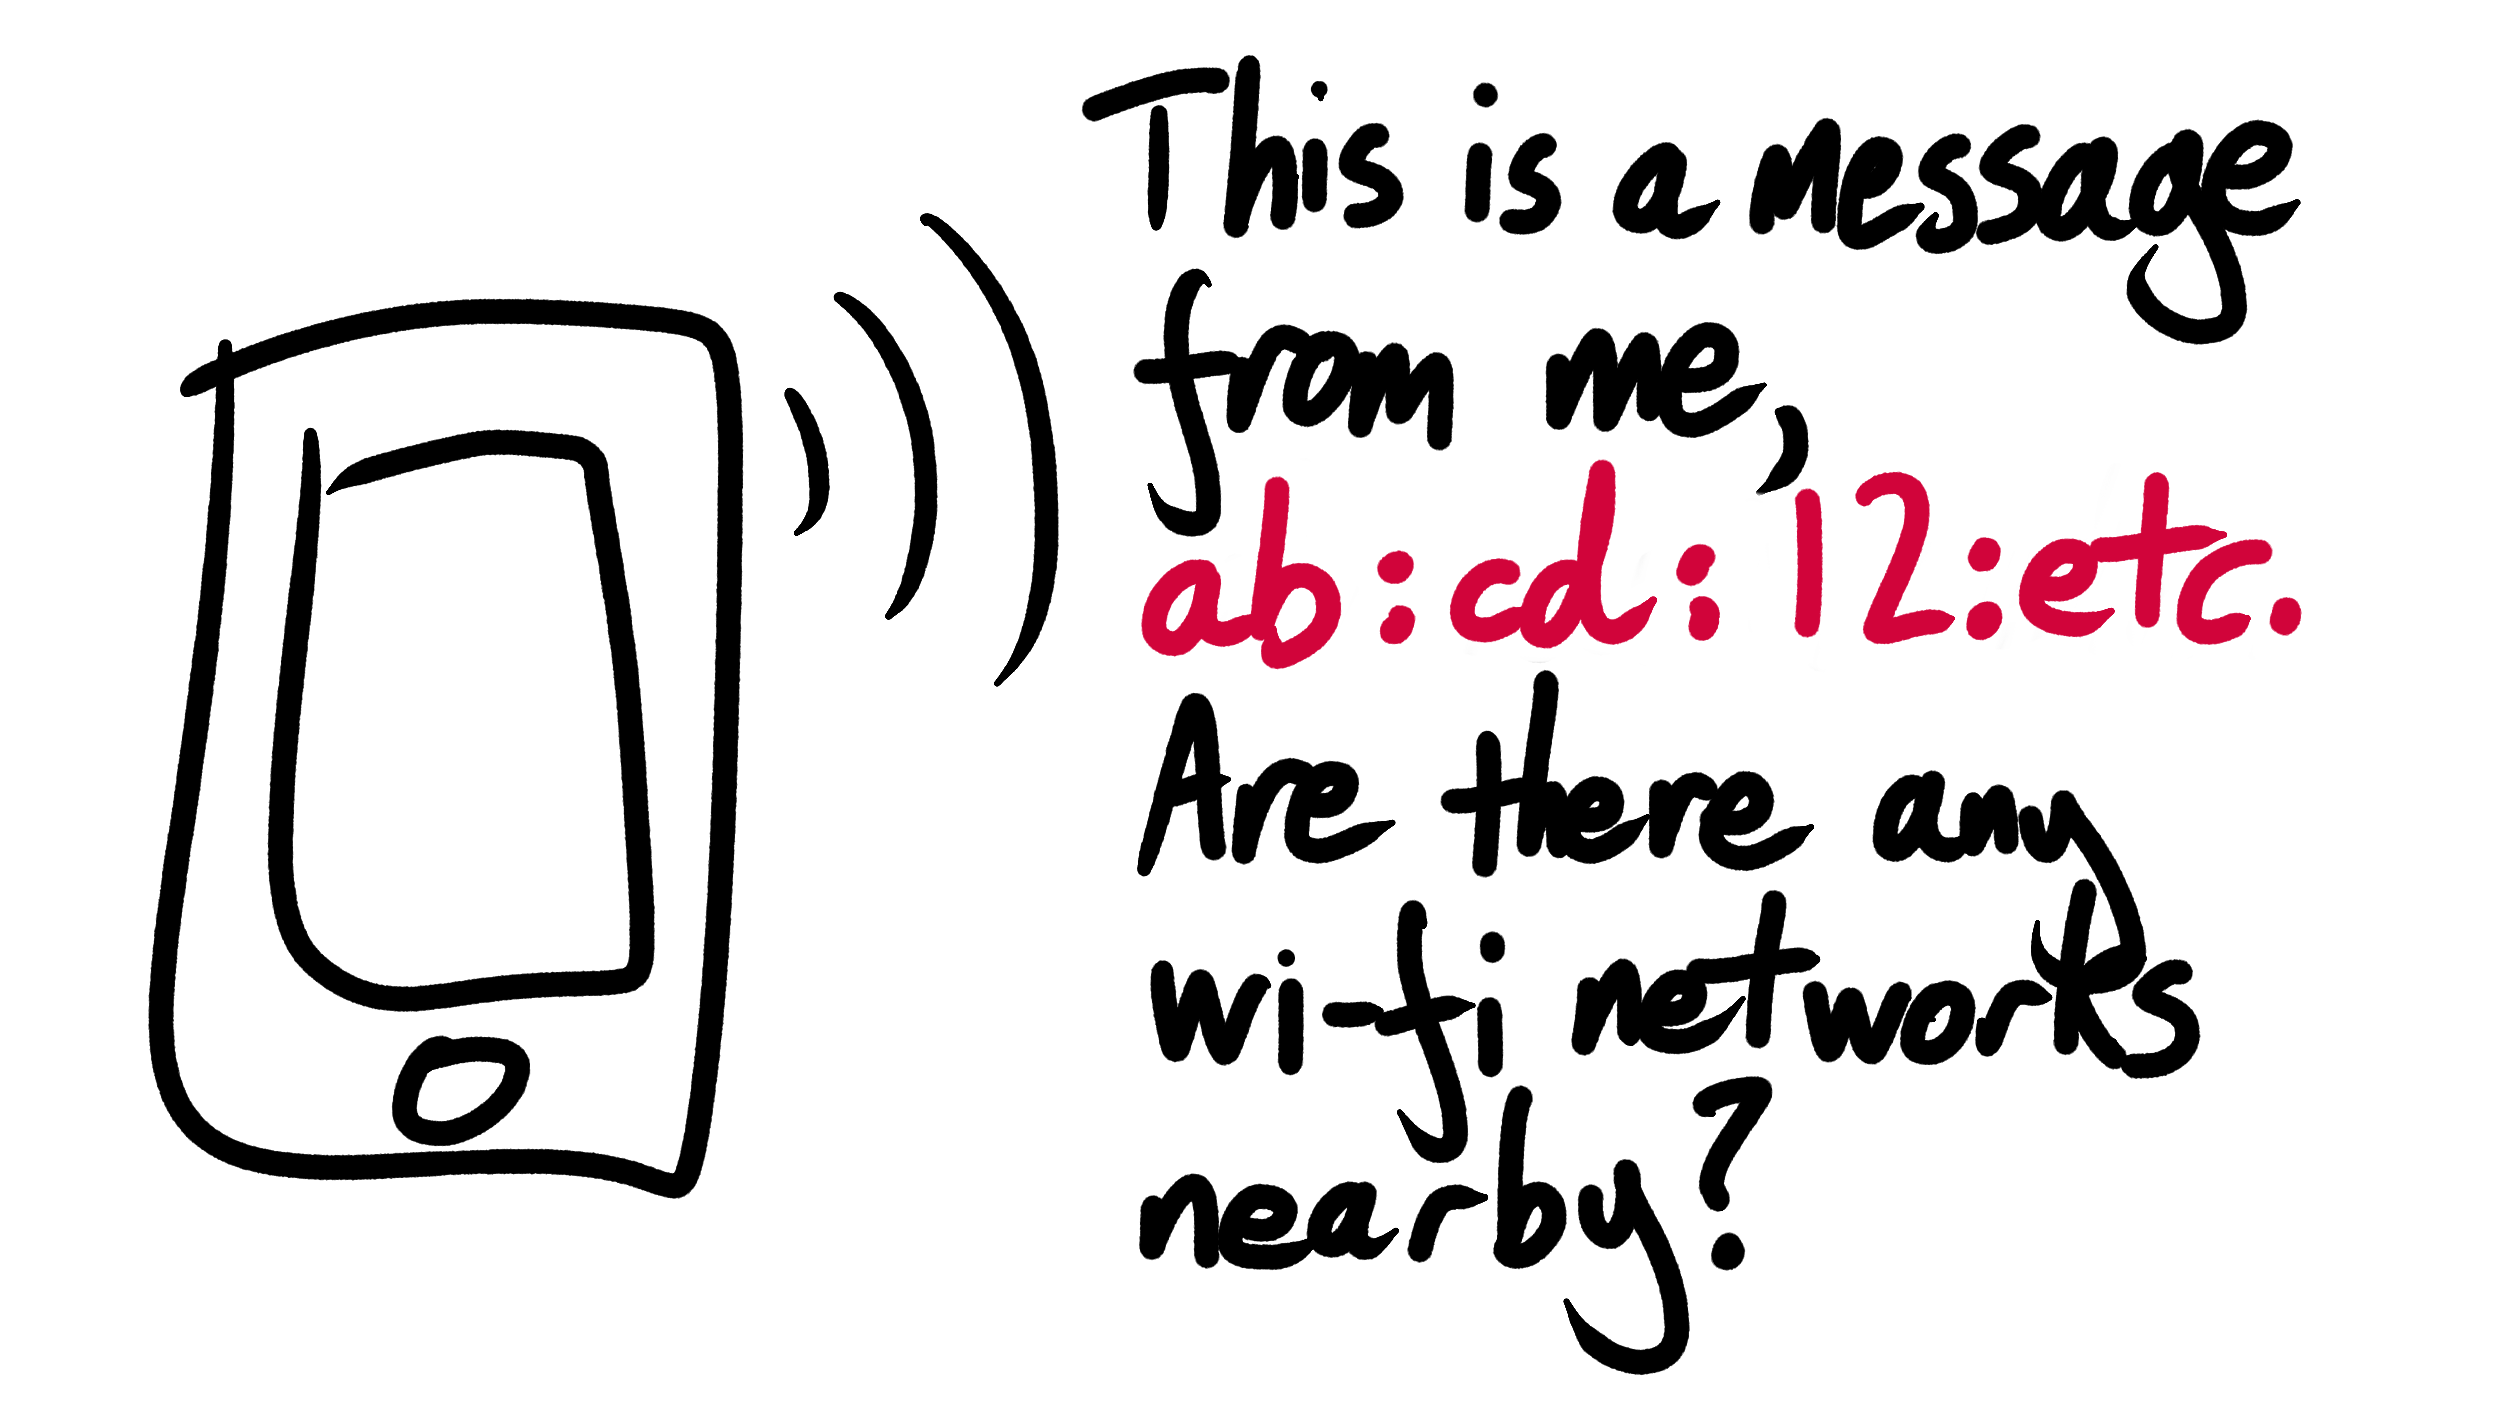 This is a message
from me,
ab:cd:12:etc.
Are there any
wi-fi networks
nearby?